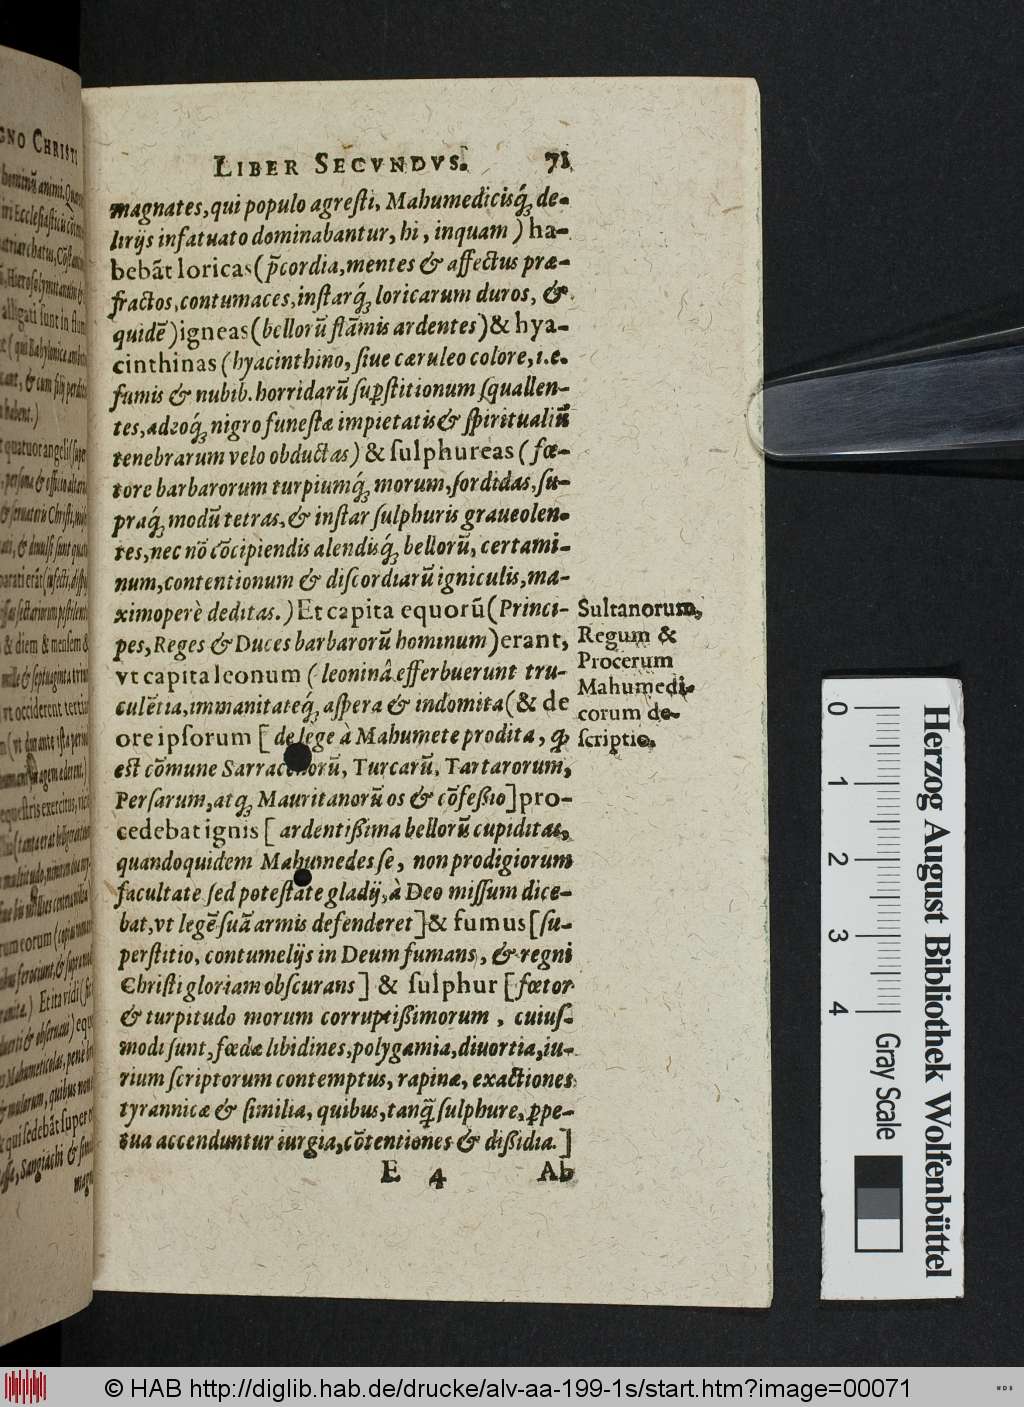 LIBER SECVNDVS. 71
magnates, qui populo agresti, Mahumedicisq́; de-
lirijs infatuato dominabantur, hi, inquam) ha-
bebāt loricas (p̄cordia, mentes & affectus præ-
fractos, contumaces, instarq́; loricarum duros, &
quidē) igneas (bellorū flāmis ardentes) & hya-
cinthinas (hyacinthino, siue cæruleo colore, i.e.
fumis & nubib. horridarū sup̱stitionum squallen-
tes, adeoq́; nigro funestæ impietatis & spiritualiū
tenebrarum velo obductas) & sulphureas (fœ-
tore barbarorum turpiumq́; morum, sordidas, su-
praq́; modū tetras, & instar sulphuris graueolen-
tes, nec nō cōcipiendis alendisq́; bellorū, certami-
num, contentionum & discordiarū igniculis, ma-
ximoperè deditas.) Et capita equorū (Princi-
pes, Reges & Duces barbarorū hominum) erant,
vt capita leonum (leoninâ efferbuerunt tru-
culētia, immanitateq́; aspera & indomita (& de
ore ipsorum [de lege à Mahumete prodita, ꝙ
est cōmune Sarracenorū, Turcarū, Tartarorum,
Persarum, atq; Mauritanorū os & cōfeßio] pro-
cedebat ignis [ardentißima bellorū cupiditas,
quandoquidem Mahumedes se, non prodigiorum
facultate sed potestate gladij, à Deo missum dice-
bat, vt legē suā armis defenderet] & fumus [su-
perstitio, contumelijs in Deum fumans, & regni
Christi gloriam obscurans] & sulphur [fœtor
& turpitudo morum corruptißimorum, cuius-
modi sunt, fœdæ libidines, polygamia, diuortia, iu-
rium scriptorum contemptus, rapinæ, exactiones
tyrannicæ & similia, quibus, tanq̄ sulphure, ꝑpe-
tua accenduntur iurgia, cōtentiones & dißidia.]
E 4 Ab
Sultanorum,
Regum &
Procerum
Mahumedi-
corum de-
scriptio.
GNO CHRISTI
Herzog August Bibliothek Wolfenbüttel
0 1 2 3 4
Gray Scale
© HAB http://diglib.hab.de/drucke/alv-aa-199-1s/start.htm?image=00071